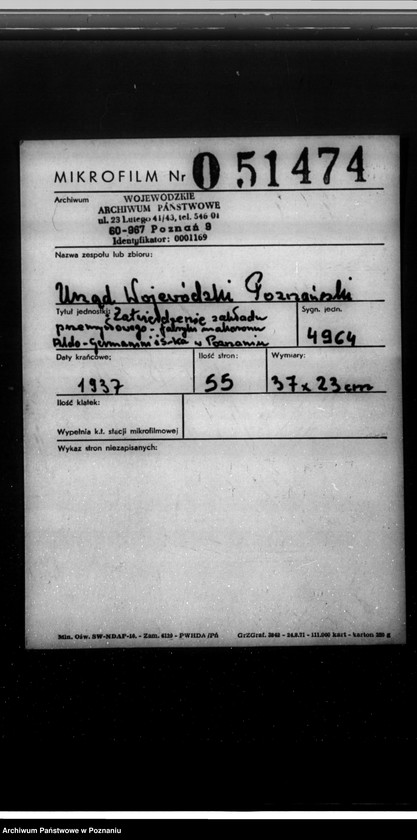 MIKROFILM Nr 051474
Archiwum
WOJEWÓDZKIE
ARCHIWUM PAŃSTWOWE
ul. 23 Lutego 41/43, tel. 546 01
60-967 Poznań 9
Identyfikator: 0001169
Nazwa zespołu lub zbioru:
Urząd Wojewódzki Poznański
Tytuł jednostki: Zatwierdzenie zakładu
przemysłowego - fabryki makaronu
Aldo-Germanini i S-ka w Poznaniu
Sygn. jedn.
4964
Daty krańcowe:
1937
Ilość stron:
55
Wymiary:
37 x 23 cm
Ilość klatek:
Wypełnia k.t. stacji mikrofilmowej
Wykaz stron niezapisanych:
Min. Ośw. SW-NDAP-16. - Zam. 6120 - PWHDA /Pń
GrZGraf. 3048 - 24.8.71 - 111.000 kart - karton 280 g
Archiwum Państwowe w Poznaniu